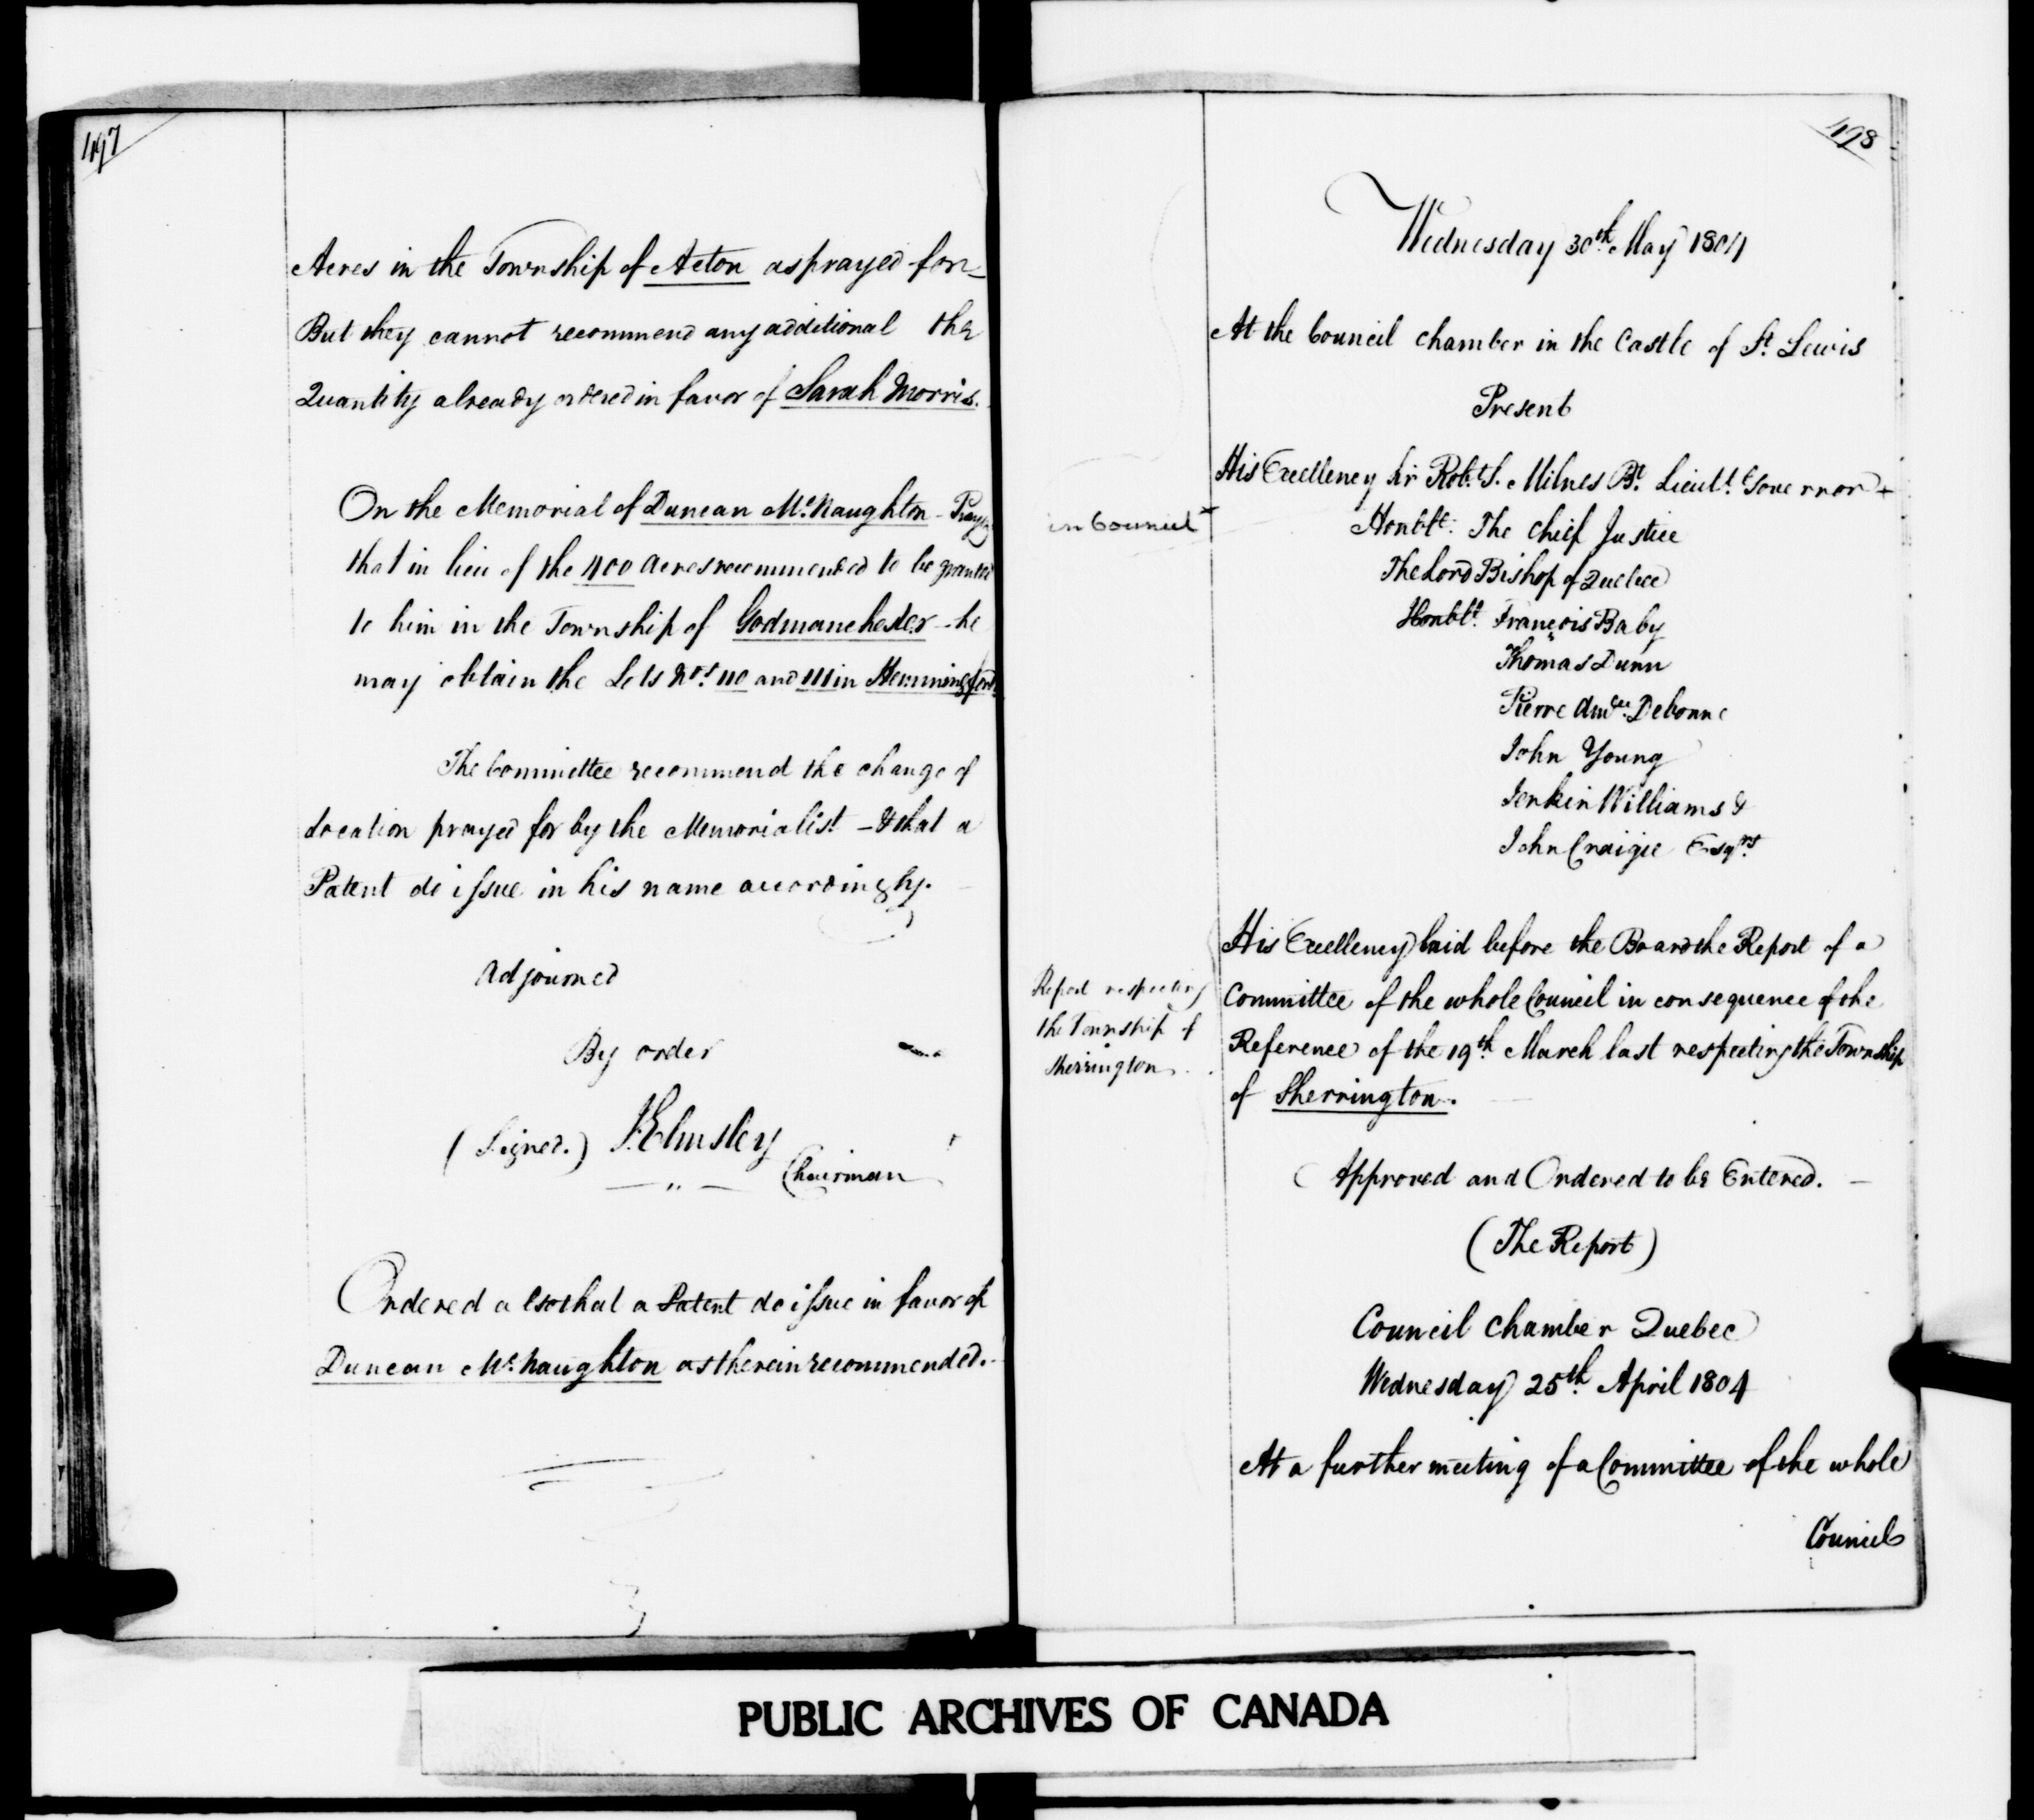 497
Acres in the Township of Acton as prayed for—
But they cannot recommend any additional the
Quantity already ordered in favor of Sarah Morris.
On the Memorial of Duncan Mc.Naughton - Prayg
that in lieu of the 400 Acres recommended to be granted
to him in the Township of Godmanchester - he
may obtain the Lots Nos. 110 and 111 in Hemmingford
The Committee recommend the change of
Location prayed for by the Memorialist - & that a
Patent do issue in his name accordingly.
Adjourned
By order
(Signed.) J. Elmsley
Chairman
Ordered also that a Patent do issue in favor of
Duncan Mc.Naughton as therein recommended.
498
Wednesday 30th. May 1804
At the Council Chamber in the Castle of St. Lewis
Present
His Excellency Sir Robt. S. Milnes Bt. Lieutt. Governor
in Council
Honble. The Chief Justice
The Lord Bishop of Quebec
Honble. François Baby
Thomas Dunn
Pierre Amble. Debonne
John Young
Jenkin Williams &
John Craigie Esqrs.
His Excellency laid before the Board the Report of a
Committee of the whole Council in consequence of the
Reference of the 19th. March last respecting the Township
of Sherrington.
Report respecting
the Township of
Sherrington.
Approved and Ordered to be Entered. —
(The Report)
Council Chamber Quebec
Wednesday 25th. April 1804
At a further meeting of a Committee of the whole
Council
PUBLIC ARCHIVES OF CANADA